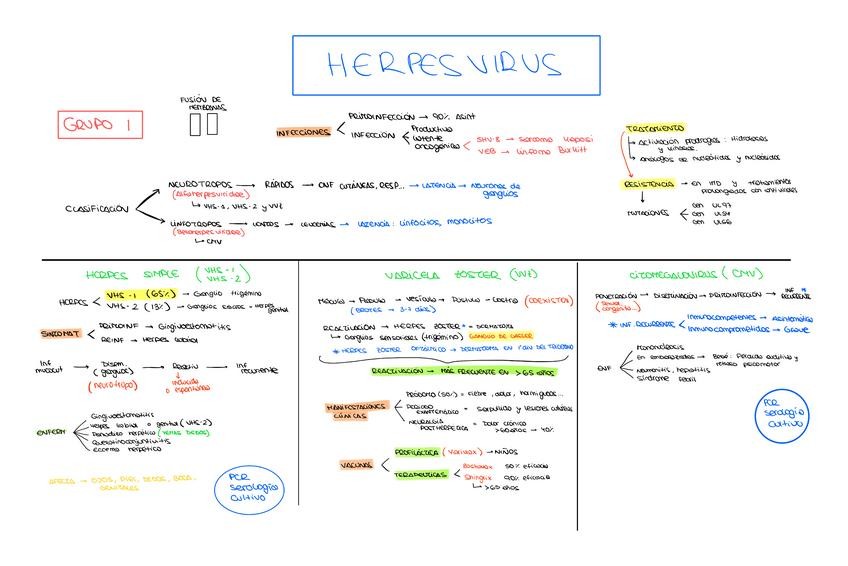 HERPESVIRUS
GRUPO 1
FUSIÓN DE
MEMBRANAS
INFECCIONES
PRIMOINFECCIÓN → 90% Asint
INFECCIÓN
Productiva
Latente
Oncogénica
SHV-8 → Sarcoma Kaposi
VEB → Linfoma Burkitt
TRATAMIENTO
Activación prodrogas: Hidrolasas
y kinasas.
Análogos de nucleótidos y nucleósidos
RESISTENCIA → en IMD y tratamientos
prolongados con antivirales
MUTACIONES
Gen UL97
Gen UL54
Gen UL56
CLASIFICACIÓN
NEUROTROPOS → RÁPIDOS → ENF CUTÁNEAS, RESP... → LATENCIA → Neuronas de
ganglios
(Alfaherpesviridae)
VHS-1, VHS-2 y VVZ
LINFOTROPOS → LENTOS → LEUCEMIAS → LATENCIA: Linfocitos, monocitos
(Betaherpesviridae)
CMV
HERPES SIMPLE (VHS-1
VHS-2)
HERPES
VHS-1 (65%) → Ganglio trigémino
VHS-2 (13%) → Ganglios sacros → Herpes
genital
SINTOMAT
PRIMOINF → Gingivoestomatitis
REINF → Herpes labial
Inf
mucocut → Disem.
(ganglios) → Reactiv → Inf
recurrente
(neurotropo)
inducida
o espontánea
ENFERM
Gingivoestomatitis
Herpes labial o genital (VHS-2)
Panadizo herpético (YEMAS DEDOS)
Queratoconjuntivitis
Eccema herpético
AFECTA → OJOS, PIEL, DEDOS, BOCA,
GENITALES
PCR
serología
cultivo
VARICELA ZOSTER (VVZ)
Mácula → Pápula → Vesícula → Pústula → Costra (COEXISTEN)
(BROTES → 3-7 días)
REACTIVACIÓN → HERPES ZOSTER → DERMATOMA
Ganglios sensoriales (trigémino) GANGLIO DE GASSER
* HERPES ZOSTER OFTÁLMICO → DERMATOMA EN 1ª DIV DEL TRIGÉMINO
REACTIVACIÓN → MÁS FRECUENTE EN >65 AÑOS
MANIFESTACIONES
CLÍNICAS
PRÓDROMO (50%) = Fiebre, dolor, hormigueo...
PERIODO
EXANTEMÁTICO = Sarpullido y lesiones cutáneas
NEURALGIA
POSTHERPÉTICA = Dolor crónico
>60 años → 40%
VACUNAS
PROFILÁCTICA (Varivax) → NIÑOS
TERAPEUTICAS
Zostavax 50% eficacia
Shingrix 90% eficacia
>50 años
CITOMEGALOVIRUS (CMV)
PENETRACIÓN → DISEMINACIÓN → PRIMOINFECCIÓN → INF *
RECURRENTE
(Sexual,
congénito...)
* INF. RECURRENTE
Inmunocompetentes → Asintomático
Inmunocomprometidos → Grave
ENF
Mononucleosis
En embarazadas → Bebé: Pérdida auditiva y
retraso psicomotor
Neumonitis, hepatitis
Síndrome febril
PCR
serología
cultivo